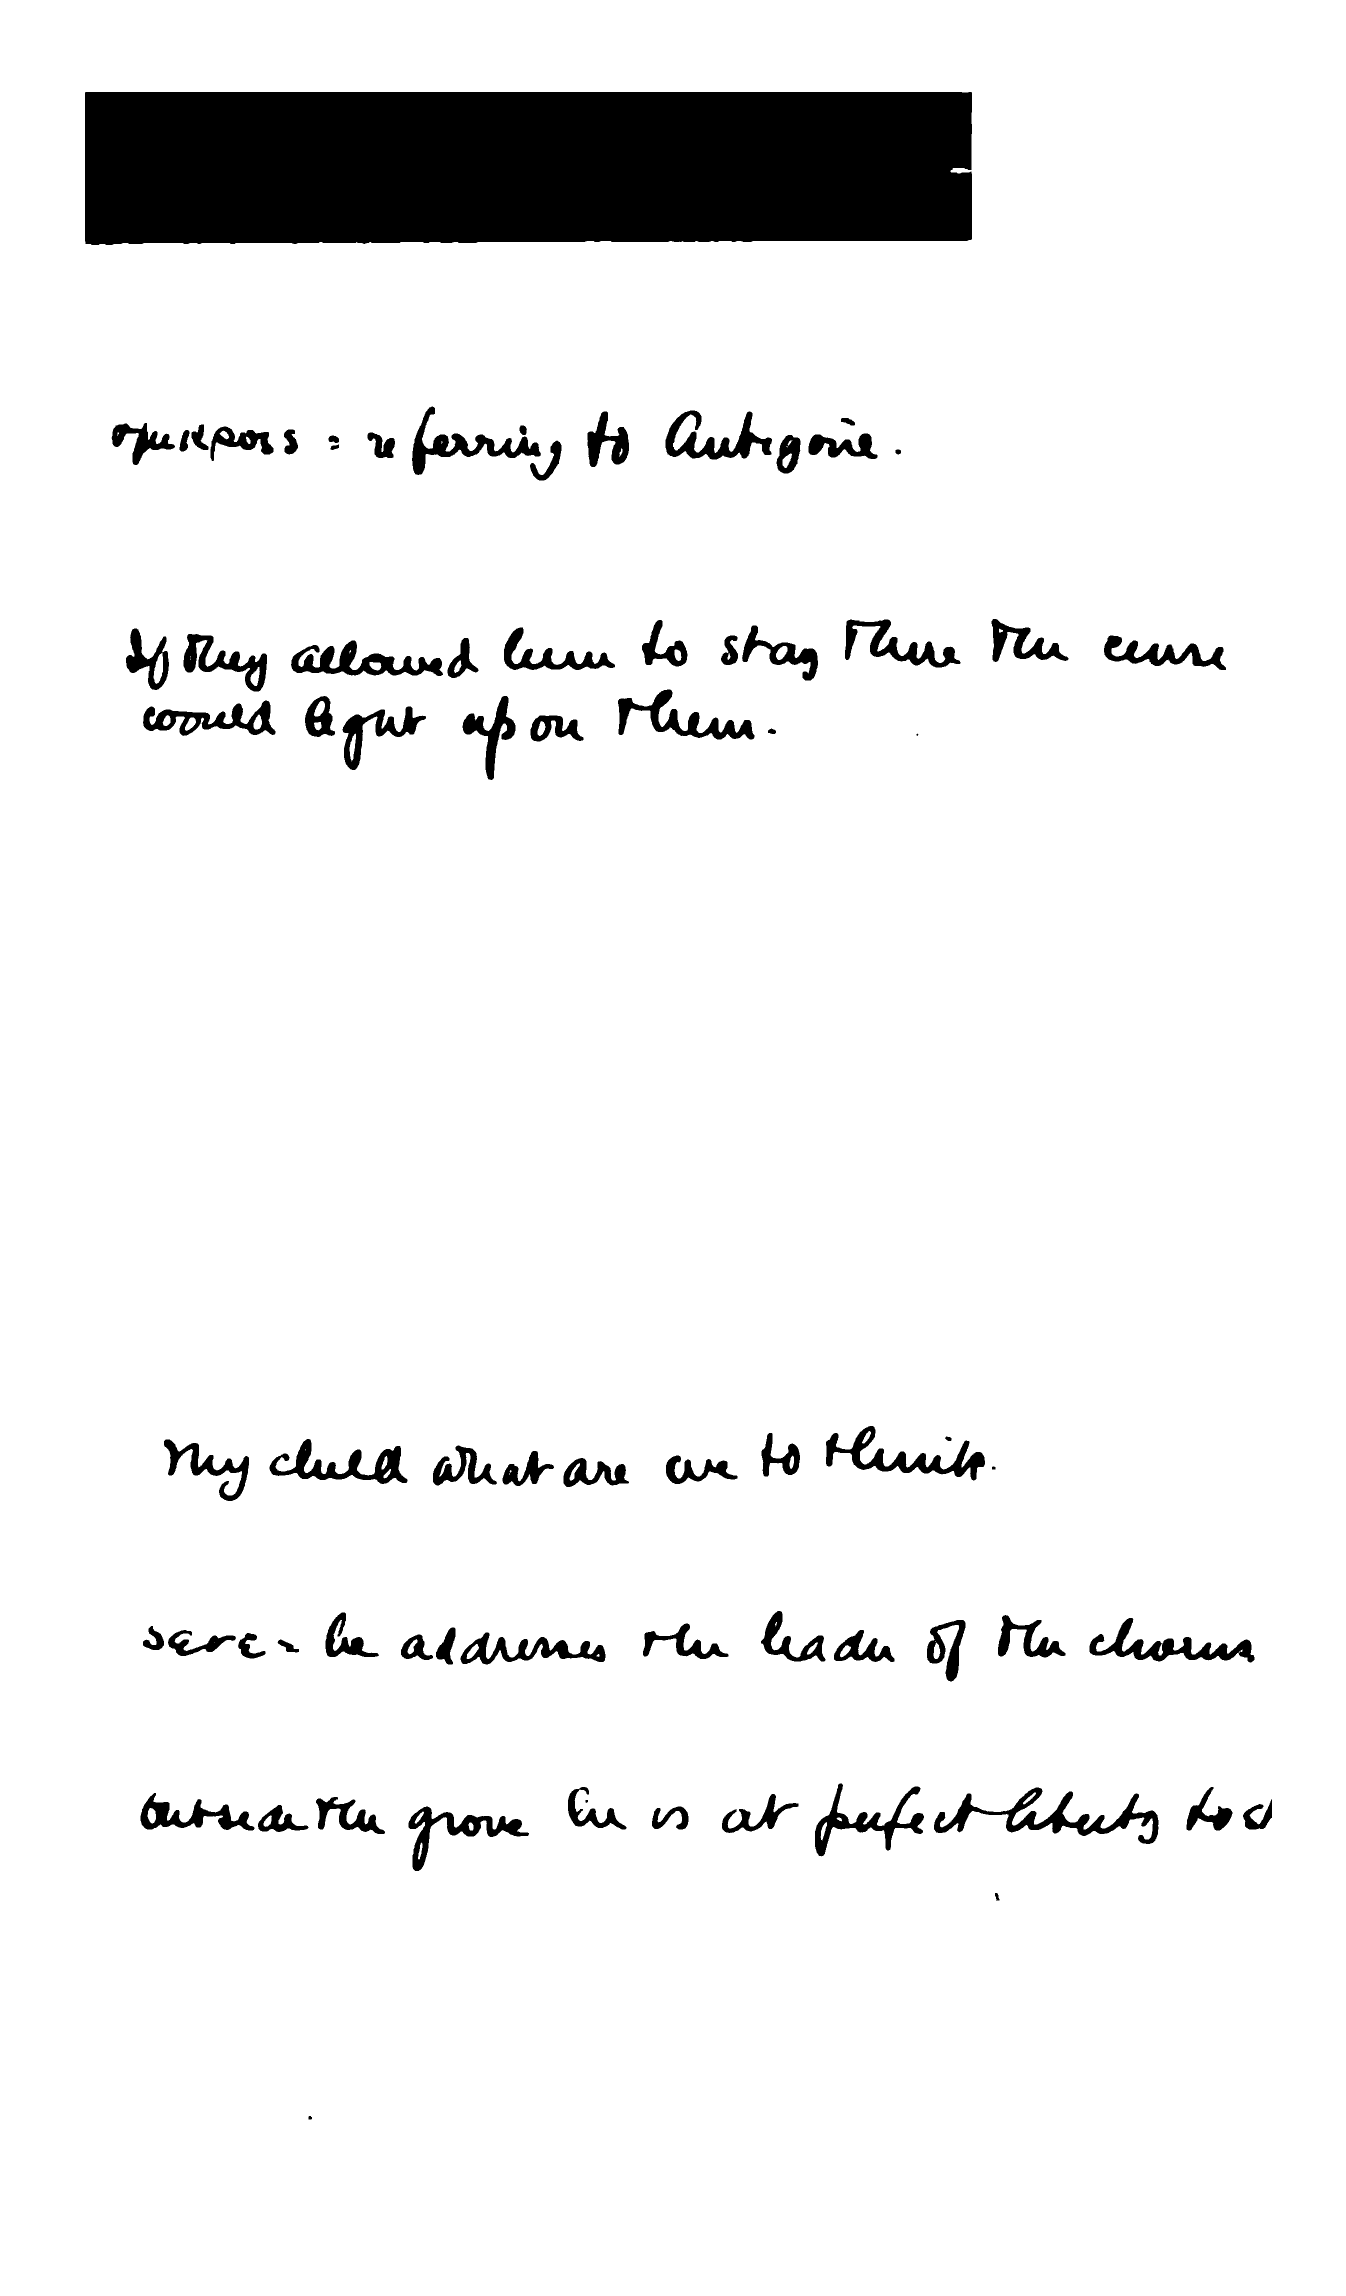 σμικροις = referring to Antigone.
If they allowed him to stay there the curse
would light upon them.
My child what are we to think.
= he addresses the leader of the chorus
outside the grove he is at perfect liberty to